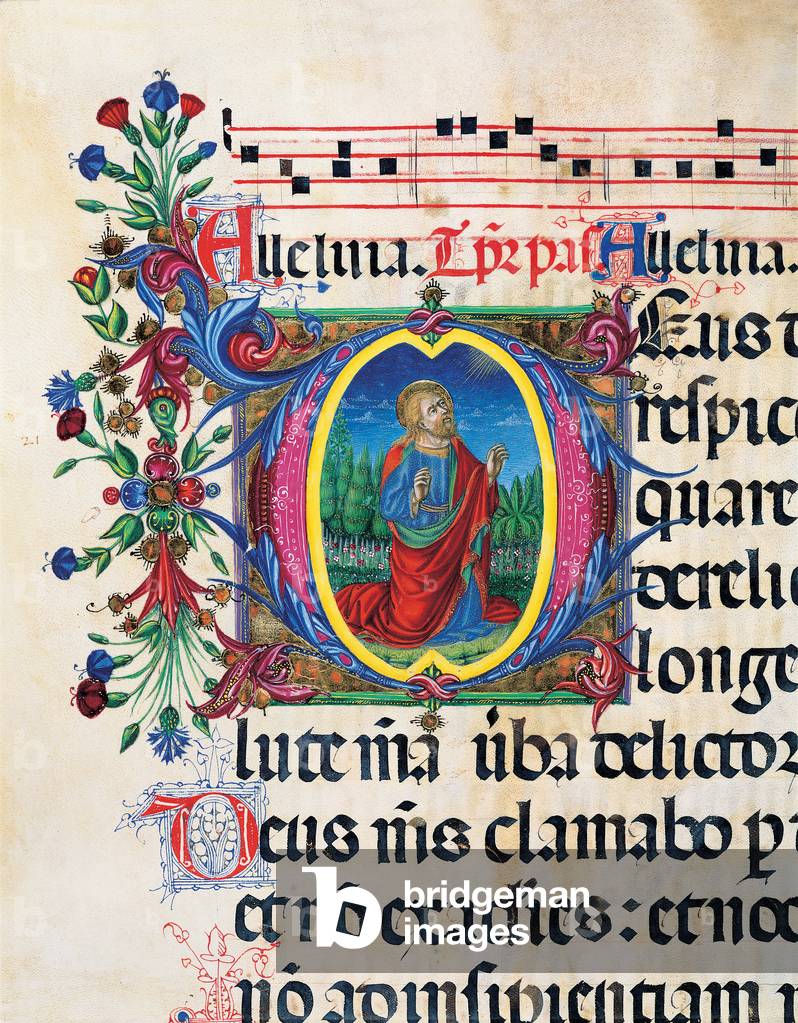 Alleluia. Alleluia.
Deus
respic
quare
dereli
longe
lute m̄a ūba delictor
Deus m̄s clamabo p
et nō : et noc
nō ad insipientiam
21
bridgeman
images